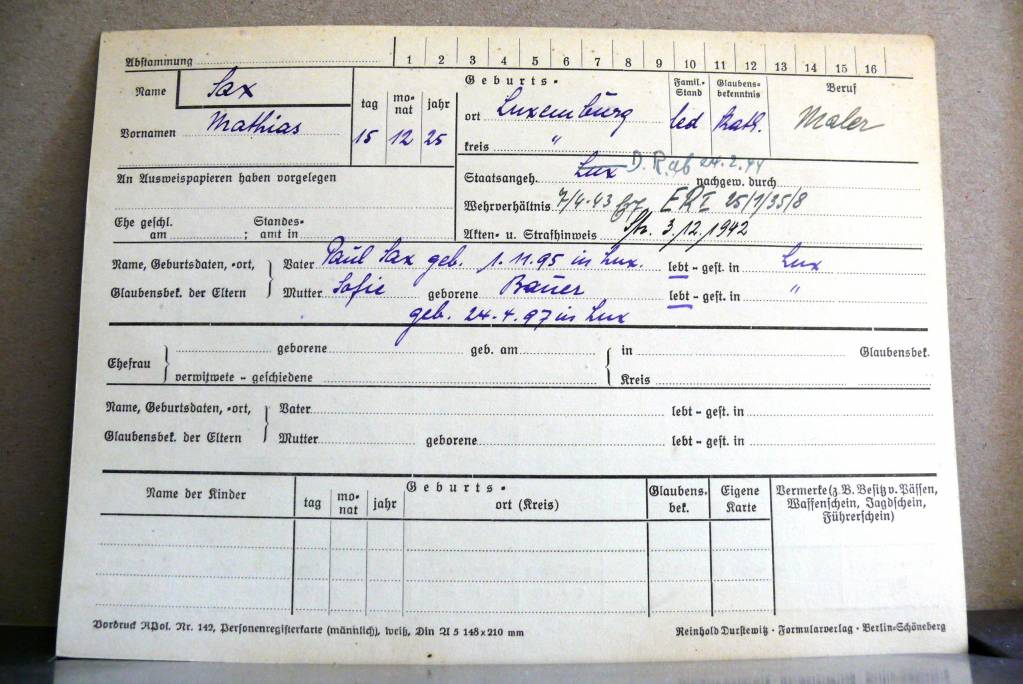 Abstammung 1 2 3 4 5 6 7 8 9 10 11 12 13 14 15 16
Name Sax
Vornamen Mathias
tag monat jahr
15 12 25
Geburts-
ort Luxemburg
kreis "
Famil.-Stand
led
Glaubens-bekenntnis
Kath.
Beruf
Maler
An Ausweispapieren haben vorgelegen
Staatsangeh. Lux D.R. ab 24.2.44 nachgew. durch
Wehrverhältnis 7/4.43 ER I 25/1/35/8
Ehe geschl. am ; Standes-amt in
Akten- u. Strafhinweis 3./12./1942
Name, Geburtsdaten, -ort, Vater Paul Sax geb. 1.11.95 in Lux. lebt - gest. in Lux
Glaubensbek. der Eltern Mutter Sofie geborene Bauer lebt - gest. in "
geb. 24.4.97 in Lux
Ehefrau geborene geb. am in Glaubensbek.
verwitwete - geschiedene Kreis
Name, Geburtsdaten, -ort, Vater lebt - gest. in
Glaubensbek. der Eltern Mutter geborene lebt - gest. in
Name der Kinder
Geburts-
tag monat jahr ort (Kreis)
Glaubens-bek.
Eigene Karte
Vermerke (z. B. Besitz v. Pässen,
Waffenschein, Jagdschein,
Führerschein)
Vordruck RPol. Nr. 142, Personenregisterkarte (männlich), weiß, Din A 5 148 x 210 mm
Reinhold Durstewitz · Formularverlag · Berlin-Schöneberg